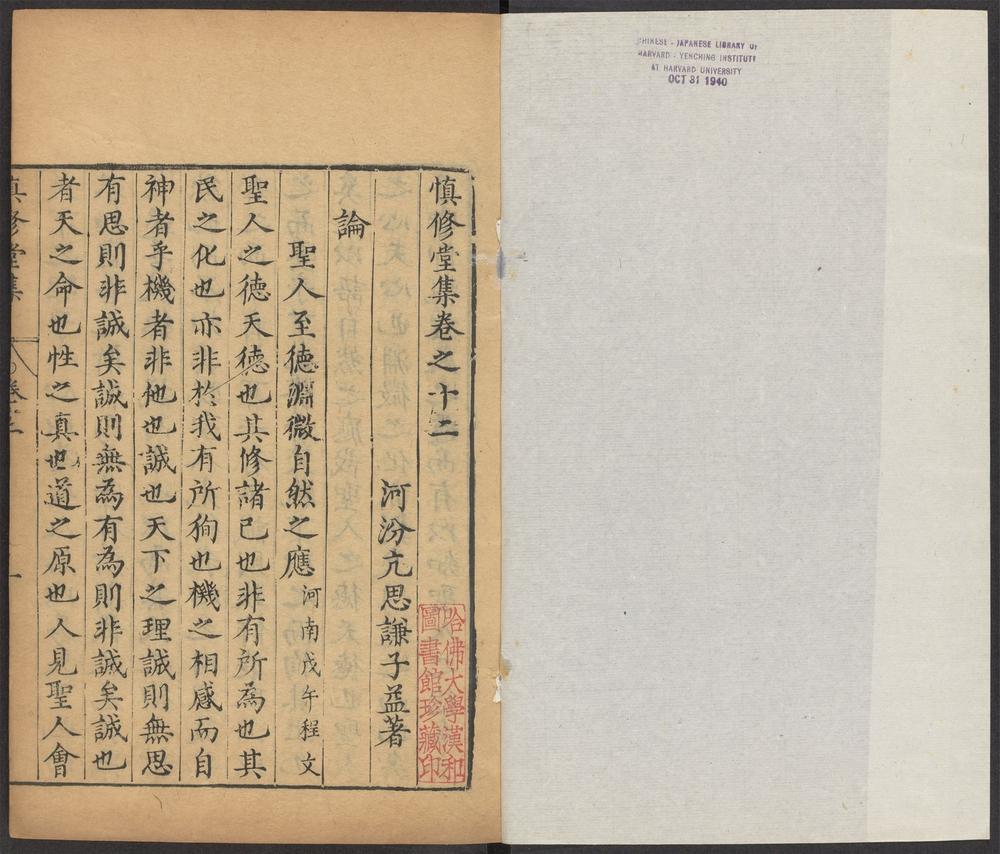 CHINESE - JAPANESE LIBRARY OF
HARVARD - YENCHING INSTITUTE
AT HARVARD UNIVERSITY
OCT 31 1940
慎修堂集卷之十二
河汾亢思謙子益著
哈佛大學漢和
圖書館珍藏印
論
聖人至德淵微自然之應河南戊午程文
聖人之德天德也其修諸已也非有所為也其
民之化也亦非於我有所狥也機之相感而自
神者乎機者非他也誠也天下之理誠則無思
有思則非誠矣誠則無為有為則非誠矣誠也
者天之命也性之真也道之原也人見聖人會
慎修堂集
卷十二
一